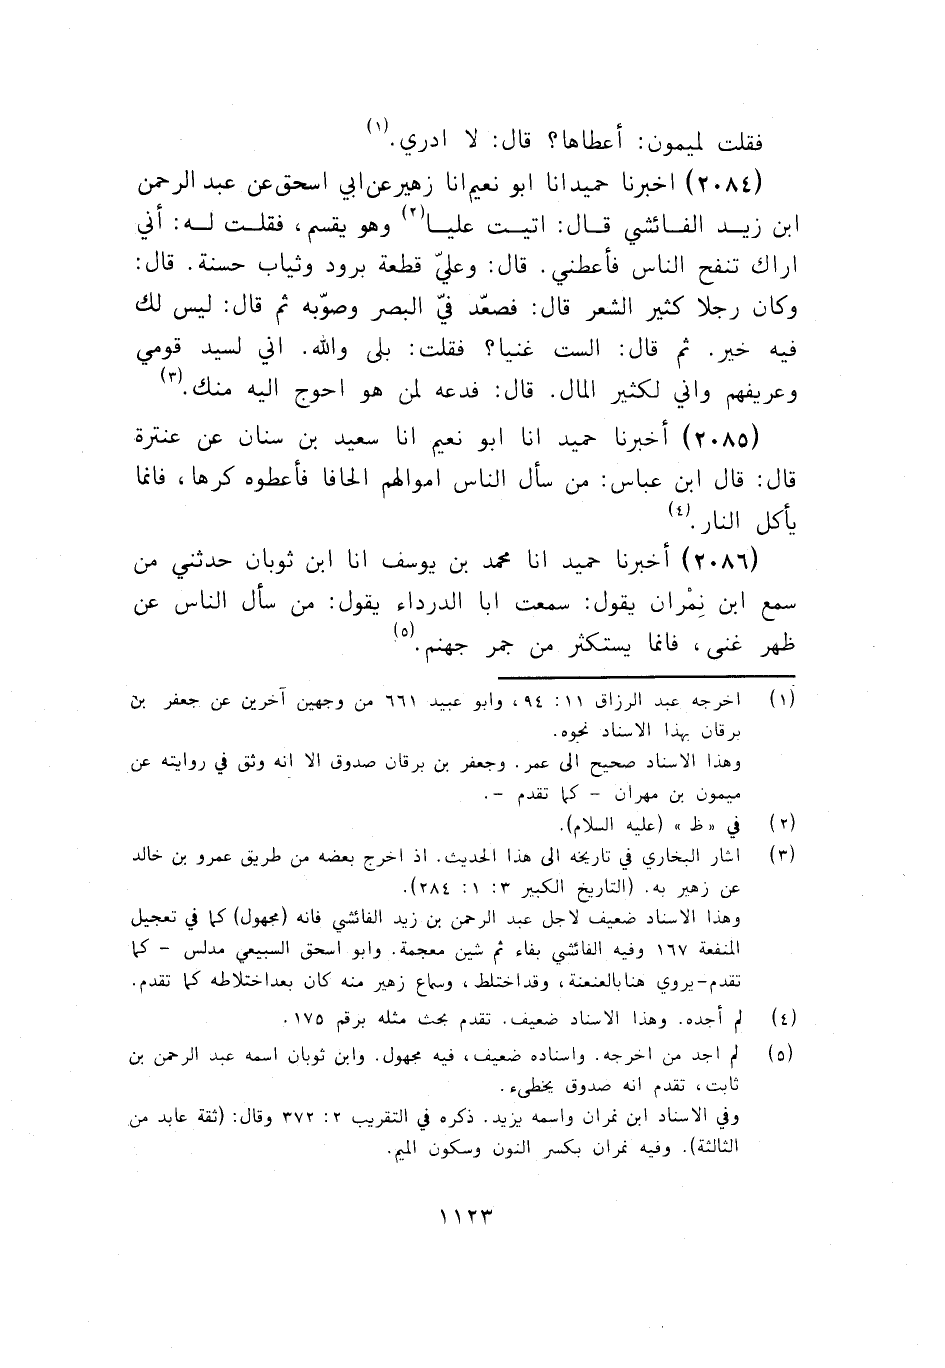 فقلت لميمون: أعطاها؟ قال: لا ادري.(١)
(٢٠٨٤) اخبرنا حميد انا ابو نعيم انا زهير عن ابي اسحق عن عبد الرحمن
ابن زيد الفائشي قال: اتيت عليا(٢) وهو يقسم، فقلت له: أني
اراك تنفح الناس فأعطني. قال: وعليّ قطعة برود وثياب حسنة. قال:
وكان رجلا كثير الشعر قال: فصعّد فيّ البصر وصوّبه ثم قال: ليس لك
فيه خير. ثم قال: الست غنيا؟ فقلت: بلى والله. اني لسيد قومي
وعريفهم واني لكثير المال. قال: فدعه لمن هو احوج اليه منك.(٣)
(٢٠٨٥) أخبرنا حميد انا ابو نعيم انا سعيد بن سنان عن عنترة
قال: قال ابن عباس: من سأل الناس اموالهم الحافا فأعطوه كرها، فانما
يأكل النار.(٤)
(٢٠٨٦) أخبرنا حميد انا محمد بن يوسف انا ابن ثوبان حدثني من
سمع ابن نِمْران يقول: سمعت ابا الدرداء يقول: من سأل الناس عن
ظهر غنى، فانما يستكثر من جمر جهنم.(٥)
(١) اخرجه عبد الرزاق ١١: ٩٤، وابو عبيد ٦٦١ من وجهين آخرين عن جعفر بن
برقان بهذا الاسناد نحوه.
وهذا الاسناد صحيح الى عمر. وجعفر بن برقان صدوق الا انه وثق في روايته عن
ميمون بن مهران - كما تقدم -.
(٢) في «ظ» (عليه السلام).
(٣) اشار البخاري في تاريخه الى هذا الحديث. اذ اخرج بعضه من طريق عمرو بن خالد
عن زهير به. (التاريخ الكبير ٣: ١: ٢٨٤).
وهذا الاسناد ضعيف لاجل عبد الرحمن بن زيد الفائشي فانه (مجهول) كما في تعجيل
المنفعة ١٦٧ وفيه الفائشي بفاء ثم شين معجمة. وابو اسحق السبيعي مدلس - كما
تقدم-يروي هنا بالعنعنة، وقد اختلط، وسماع زهير منه كان بعد اختلاطه كما تقدم.
(٤) لم أجده. وهذا الاسناد ضعيف. تقدم بحث مثله برقم ١٧٥.
(٥) لم اجد من اخرجه. واسناده ضعيف، فيه مجهول. وابن ثوبان اسمه عبد الرحمن بن
ثابت، تقدم انه صدوق يخطىء.
وفي الاسناد ابن نمران واسمه يزيد. ذكره في التقريب ٢: ٣٧٢ وقال: (ثقة عابد من
الثالثة). وفيه نمران بكسر النون وسكون الميم.
١١٢٣